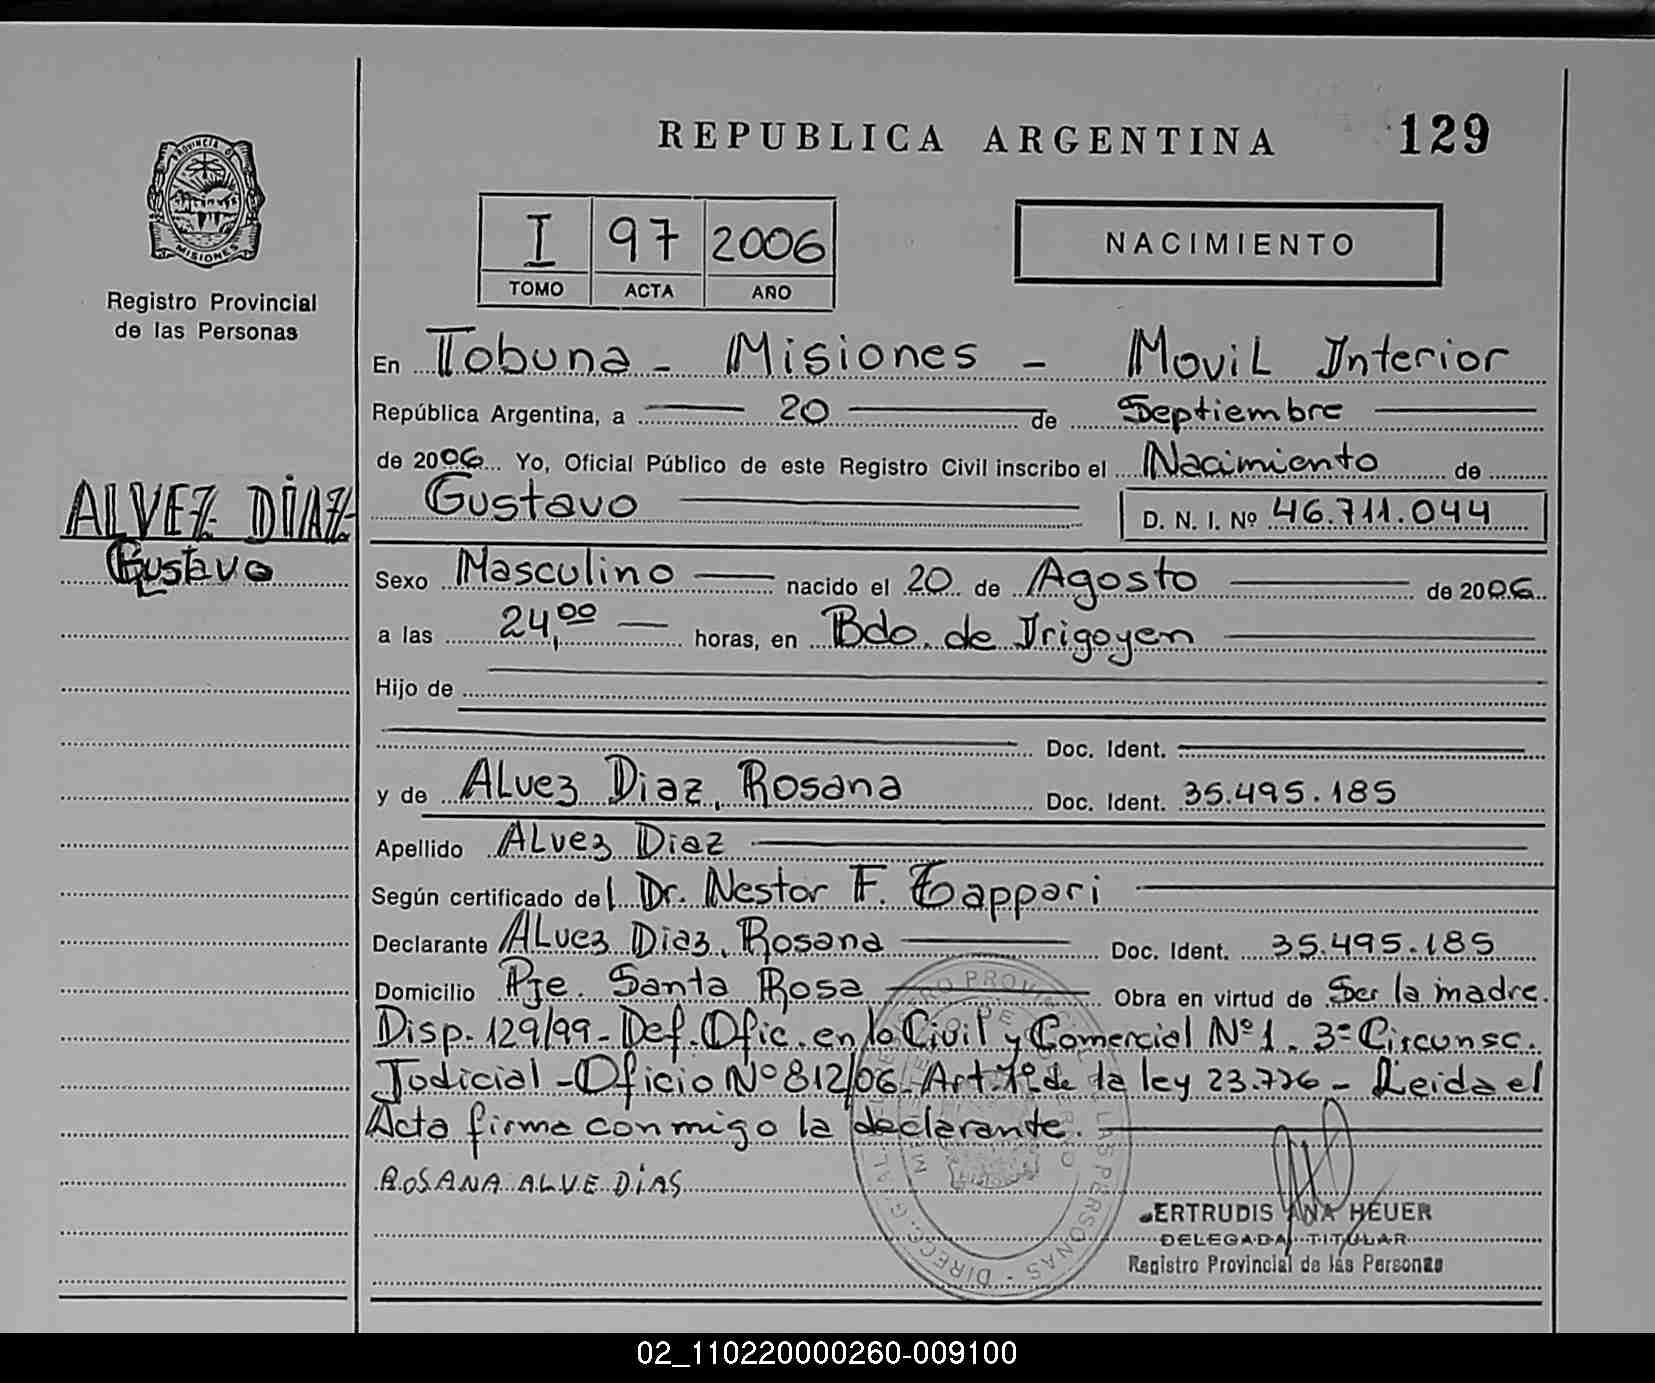 REPUBLICA ARGENTINA 129
PROVINCIA DE MISIONES
Registro Provincial
de las Personas
I 97 2006
TOMO ACTA AÑO
NACIMIENTO
En Tobuna - Misiones - Movil Interior
República Argentina, a 20 de Septiembre
de 2006 Yo, Oficial Público de este Registro Civil inscribo el Nacimiento de
ALVEZ DIAZ
Gustavo
Gustavo D. N. I. Nº 46.711.044
Sexo Masculino nacido el 20 de Agosto de 2006
a las 24,00 horas, en Bdo. de Irigoyen
Hijo de
Doc. Ident.
y de Alvez Diaz, Rosana Doc. Ident. 35.495.185
Apellido Alvez Diaz
Según certificado del Dr. Nestor F. Tappari
Declarante Alvez Diaz, Rosana Doc. Ident. 35.495.185
Domicilio Pje. Santa Rosa Obra en virtud de Ser la madre.
Disp. 129/99 - Def. Ofic. en lo Civil y Comercial Nº 1. 3º Circunsc.
Judicial - Oficio Nº 812/06. Art. 1º de la ley 23.776 - Leida el
Acta firma conmigo la declarante.
ROSANA ALVE DIAS
ERTRUDIS ANA HEUER
DELEGADA TITULAR
Registro Provincial de las Personas
02_110220000260-009100